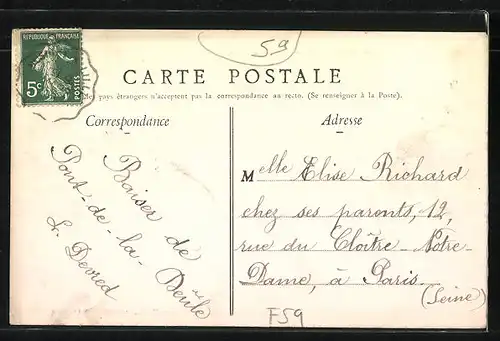 59
REPUBLIQUE FRANÇAISE
5c
POSTES
CARTE POSTALE
les pays étrangers n'acceptent pas la correspondance au recto. (Se renseigner à la Poste).
Correspondance
Baiser de
Pont-de-la-Deûle
L. Devred
Adresse
Melle Elise Richard
chez ses parents, 12,
rue du Cloître-Notre
Dame, à Paris
(Seine)
F59